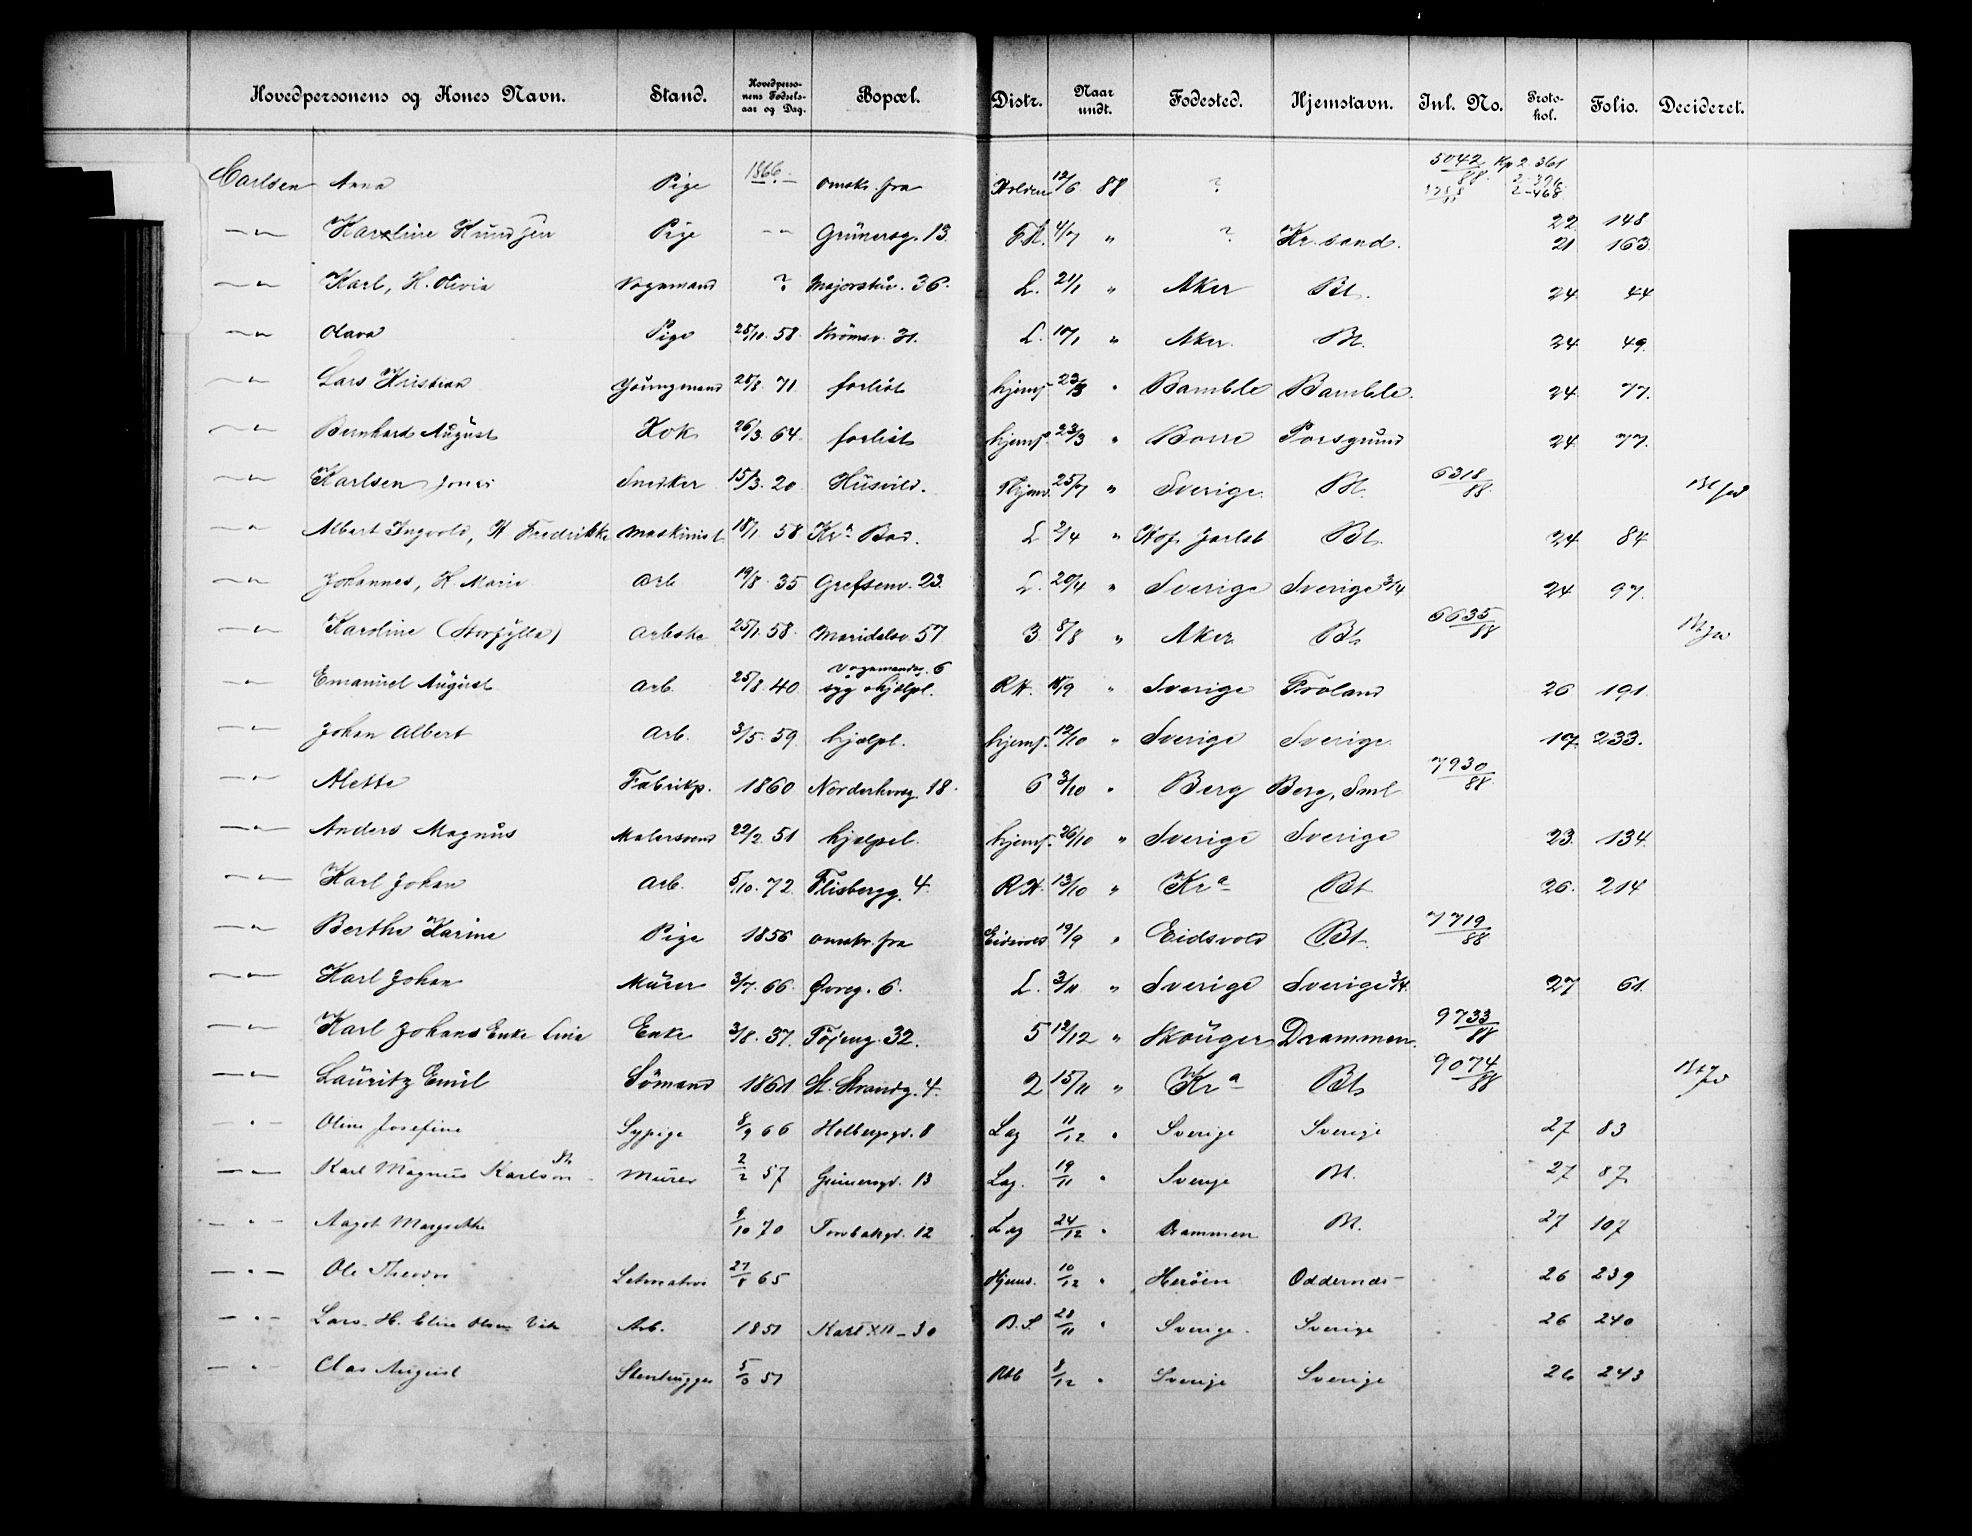 Hovedpersonens og Kones Navn. Stand. Hovedpersonens Fødselsaar og Dag. Bopæl. Distr. Naar undt. Fødested. Hjemstavn. Inl. No. Protokol. Folio. Decideret.
Carlsen Anna Pige 1866 omsk. fra Holden 12/6 88 ? 5042/88 Kp 2 361
-"- Karoline Pige -"- Grünersg. 13. 4/7 " ? Kr.sand. 22 148
21 163
-"- Karl, H. Olivia Vognmand ? Majorstuv. 36. L. 21/1 " Aker Bt. 24 44
-"- Olava Pige 28/10 58 Strömsv. 31. L. 10/1 " Aker. Bt. 24 49
-"- Lars Kristian Youngmand 28/8 71 forlist hjemf 23/3 " Bamble Bamble. 24 77.
-"- Bernhard August Kok 26/3 64 forlist hjemf 23/3 " Borre Porsgrund 24 77.
-"- Karlsen Jonas Snedker 15/3 20 Husvild. 25/7 " Sverige Bt. 6318/88
-"- Albert Ingvold, H Fredrikke Maskinist 18/1 58 Kra Bad. L 2/4 " Hof Jarlsb Bt. 24 84
-"- Johannes, H. Marie Arb 19/8 35 Grefsenv. 23 L. 20/4 " Sverige Sverige 3/4 24 97.
-"- Karoline Arbske 25/1 58 Maridalsv 57 3 8/8 " Aker Bt 6635/88
-"- Emanuel August Arb. 25/8 40 Vognmandsg. 6 syg hjælpl. RH. " Sverige Froland 26 191
-"- Johan Albert Arb. 3/5 59 hjælpl. hjemf. 12/10 " Sverige Sverige 19 233.
-"- Alette Fabrikp. 1860 Norderhovsg. 18. 6 3/10 " Berg Berg, Sml 7930/88
-"- Anders Magnus Malersvend 22/2 51 hjælpsl. hjemf. 26/10 " Sverige Sverige 23. 134
-"- Karl Johan Arb. 5/10 72 Flisbergg. 4. RH. 13/10 " Kra Bt 26. 214
-"- Berthe Karine Pige 1856 omsk. fra Eidsvold 19/9 " Eidsvold Bt. 7719/88
-"- Karl Johan Murer 3/7 66 Øvreg. 6. L. 3/11 " Sverige Sverige 3/4 27 61
-"- Karl Johans Enke Lina Enke 3/8 37 Töjeng. 32. 5 12/12 " Skouger Drammen. 9733/88
-"- Lauritz Emil Sömand 1861 St. Strandg. 4. 2 15/11 " Kra Bt 9074/88
-"- Oline Josefine Sypige 8/9 66 Holbergsgd. 8 Lag 11/12 " Sverige Sverige 27 83
-"- Karl Magnus Karlson Murer 2/2 57 Grünersgd. 13 Lag. 19/11 " Sverige Bt. 27 87
-"- Aagot Margrethe 9/10 70 12 Lag 24/12 " Drammen Bt. 27 107
-"- Ole 27/8 65 Hjemf. 10/12 " Heröen Oddernes 26 239
-"- Lars. H. Eline Olsen Arb. 1851 Karl XII - 30 B.S. 28/11 " Sverige. Sverige 26 240
-"- Clas August Stenhugger 51 Rbt 8/12 " Sverige Sverige 26 243